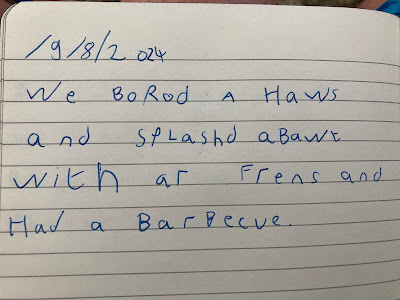 19/8/2024
We BoRod A Haws
and SPLashd aBawt
with ar Frens and
Had a BarBecue.